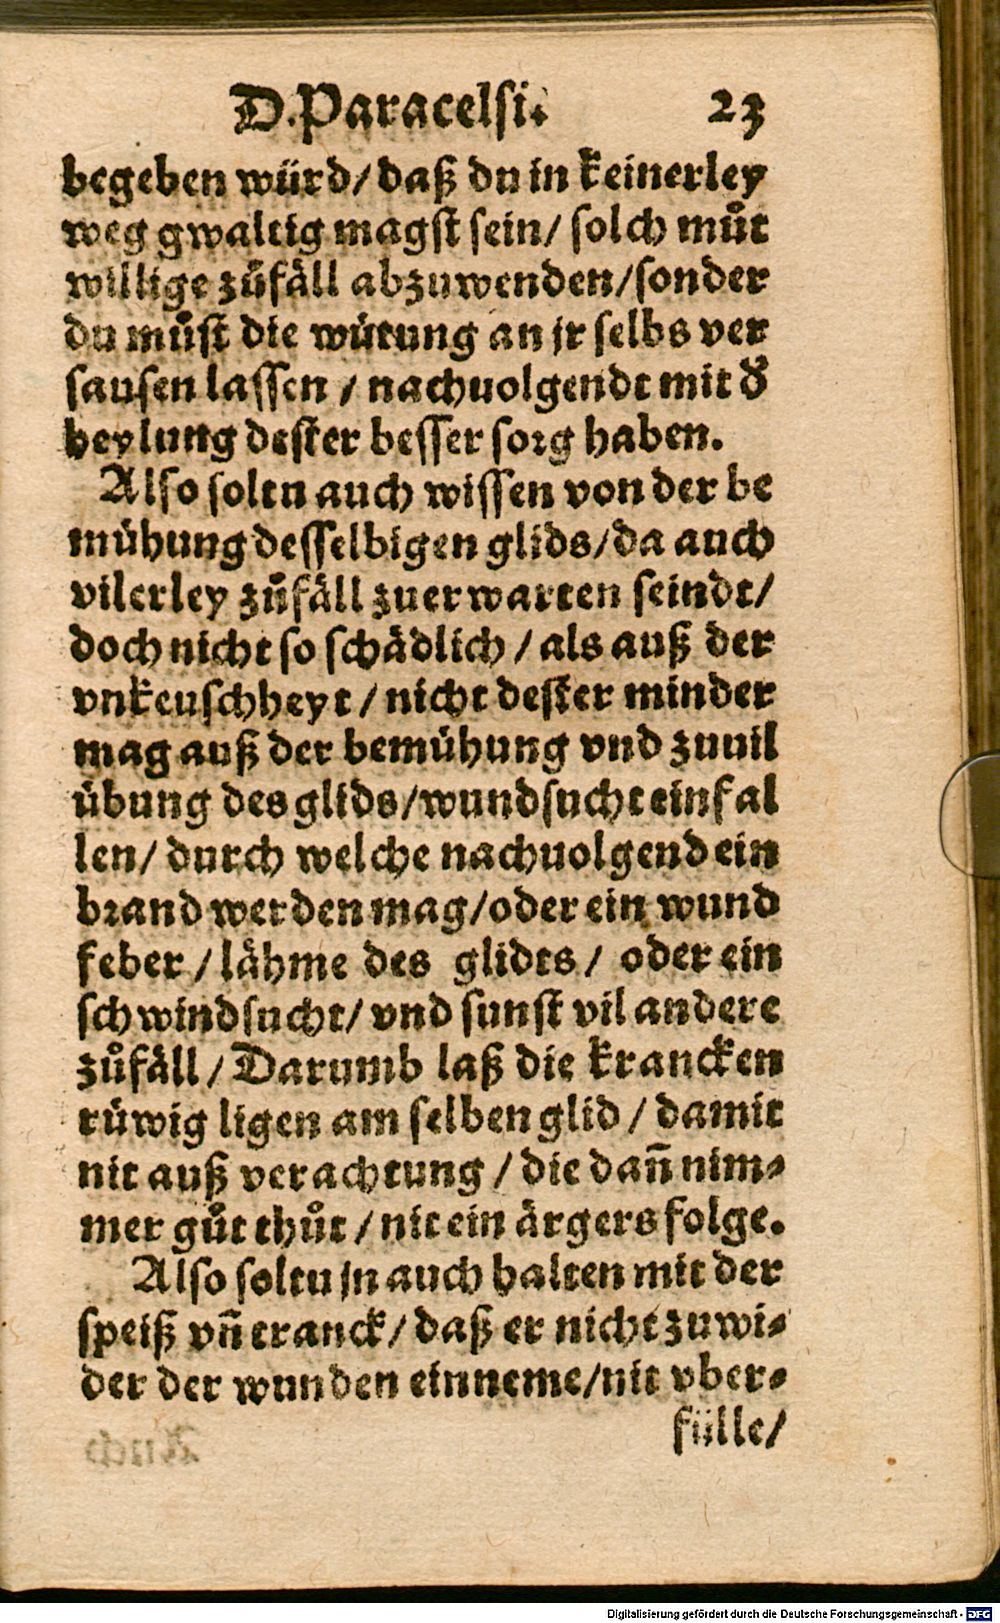 D. Paracelsi. 23
begeben würd/ daß du in keinerley
weg gwaltig magst sein/ solch můt
willige zůfäll abzuwenden/ sonder
du můst die wütung an jr selbs ver
sausen lassen / nachuolgendt mit d̕
heylung dester besser sorg haben.
Also soltu auch wissen von der be
mühung desselbigen glids/ da auch
vilerley zůfäll zuerwarten seindt/
doch nicht so schädlich / als auß der
vnkeuschheyt / nicht dester minder
mag auß der bemühung vnd zuuil
übung des glids/ wundsucht einfal
len/ durch welche nachuolgend ein
brand werden mag/ oder ein wund
feber / lähme des glidts / oder ein
schwindsucht/ vnd sunst vil andere
zůfäll / Darumb laß die krancken
rüwig ligen am selben glid / damit
nit auß verachtung / die dañ nim⸗
mer gůt thůt / nit ein ärgers folge.
Also soltu jn auch halten mit der
speiß vñ tranck/ daß er nicht zuwi⸗
der der wunden einneme/ nit vber⸗
fülle/
Digitalisierung gefördert durch die Deutsche Forschungsgemeinschaft - DFG